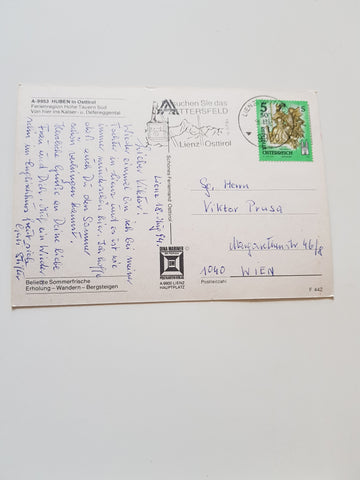 A-9953 HUBEN in Osttirol
Ferienregion Hohe Tauern Süd
Von hier ins Kalser- u. Defereggental
Lienz 18. Aug.
Lieber Viktor!
Wieder einmal bin ich bei meiner
Tochter in Lienz und es ist wie
immer wunderschön hier. Ich hoffe
daß auch Du den Sommer
schön verbringen kannst.
Herzliche Grüße an Deine liebe
Frau und Dich. Auf ein Wieder
sehn im freut sich
Beliebte Sommerfrische
Erholung – Wandern – Bergsteigen
Schönes Ferienland Osttirol
A 9900 LIENZ
HAUPTPLATZ
suchen Sie das
TTERSFELD
Lienz Osttirol
LIENZ
5 S
REPUBLIK
ÖSTERREICH
Herrn
Viktor Prusa
Margaretenstr 46/8
1040 WIEN
Postleitzahl
F 442